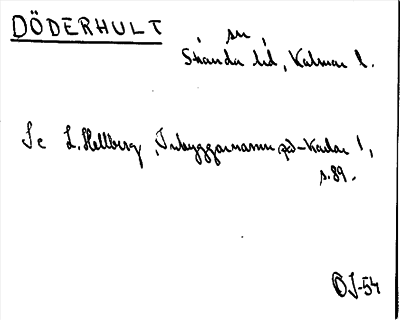 DÖDERHULT
sn
Stranda hd, Kalmar l.
Se L. Hellberg, Inbyggarnamn på -karlar 1,
s. 89.
OJ-54